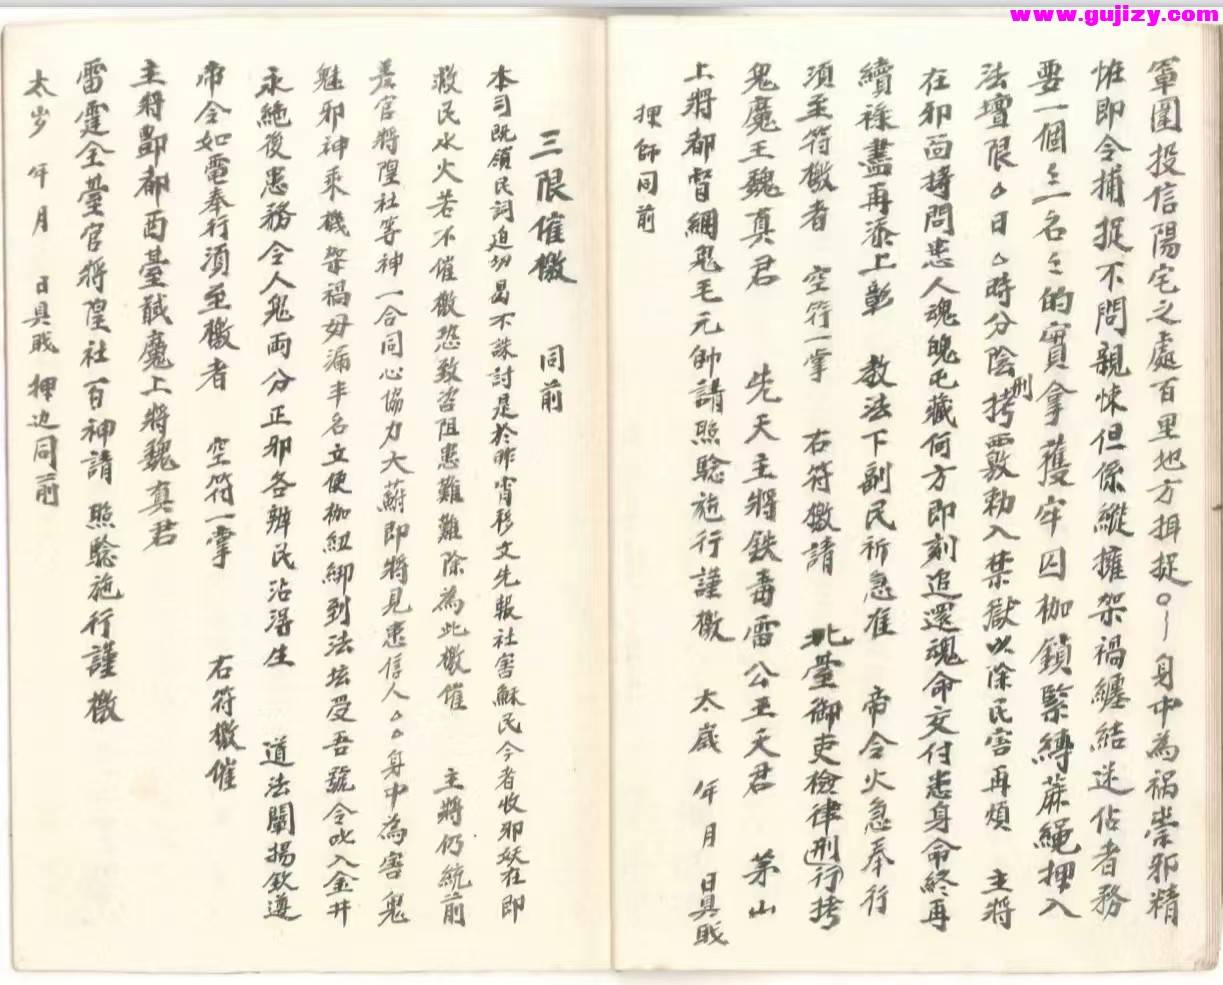 www.gujizy.com
軍圍投信陽宅之處百里地方揖捉○ 身中為祸祟邪精
恠即令捕捉不問親悚但係縱擁架禍纏結迷佔者務
要一個ミ一名ミ的實拿獲牢囚枷鎖緊縛蔴繩押入
法壇限△日△時分陰拷覈勅入禁獄以除民害再煩 主將
刑
在邪面拷問患人魂魄屯藏何方即刻追還魂命交付患身命終再
續祿盡再添上彰 教法下副民祈急准 帝令火急奉行
須至符檄者 空符一掌 右符檄請 北臺御吏檢律刑行拷
鬼魔王魏真君 先天主將鉄毒雷公王天君 茅山
上將都督綱鬼毛元帥請照驗施行謹檄 太歲 年 月 日具戝
押師同前
三限催檄 同前
本司既領民詞迫切曷不誅討是於昨宵移文先報社害蘇民今者收邪妖在即
救民水火若不催檄恐致咨阻患難難除為此檄催 主將仍統前
差官將隍社等神一合同心協力大蔚即將見患信人△△身中為害鬼
魅邪神乘機架禍毋漏丰名立便枷紐綁到法坛受吾號令叱入金井
永絕後患務令人鬼両分正邪各辨民沾得生 道法闡揚欽遵
帝令如電奉行須至檄者 空符一掌 右符檄催
主將酆都西臺馘魔上將魏真君
雷霆全臺官將隍社一百神請 照驗施行謹檄
太岁 年 月 日具戝 押边同前